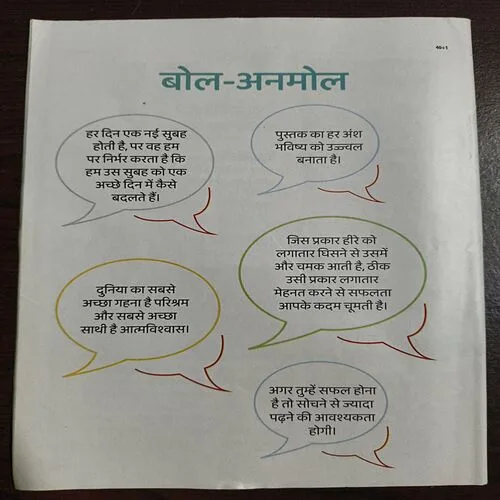 40+1
बोल-अनमोल
हर दिन एक नई सुबह
होती है, पर वह हम
पर निर्भर करता है कि
हम उस सुबह को एक
अच्छे दिन में कैसे
बदलते हैं।
पुस्तक का हर अंश
भविष्य को उज्ज्वल
बनाता है।
जिस प्रकार हीरे को
लगातार घिसने से उसमें
और चमक आती है, ठीक
उसी प्रकार लगातार
मेहनत करने से सफलता
आपके कदम चूमती है।
दुनिया का सबसे
अच्छा गहना है परिश्रम
और सबसे अच्छा
साथी है आत्मविश्वास।
अगर तुम्हें सफल होना
है तो सोचने से ज्यादा
पढ़ने की आवश्यकता
होगी।